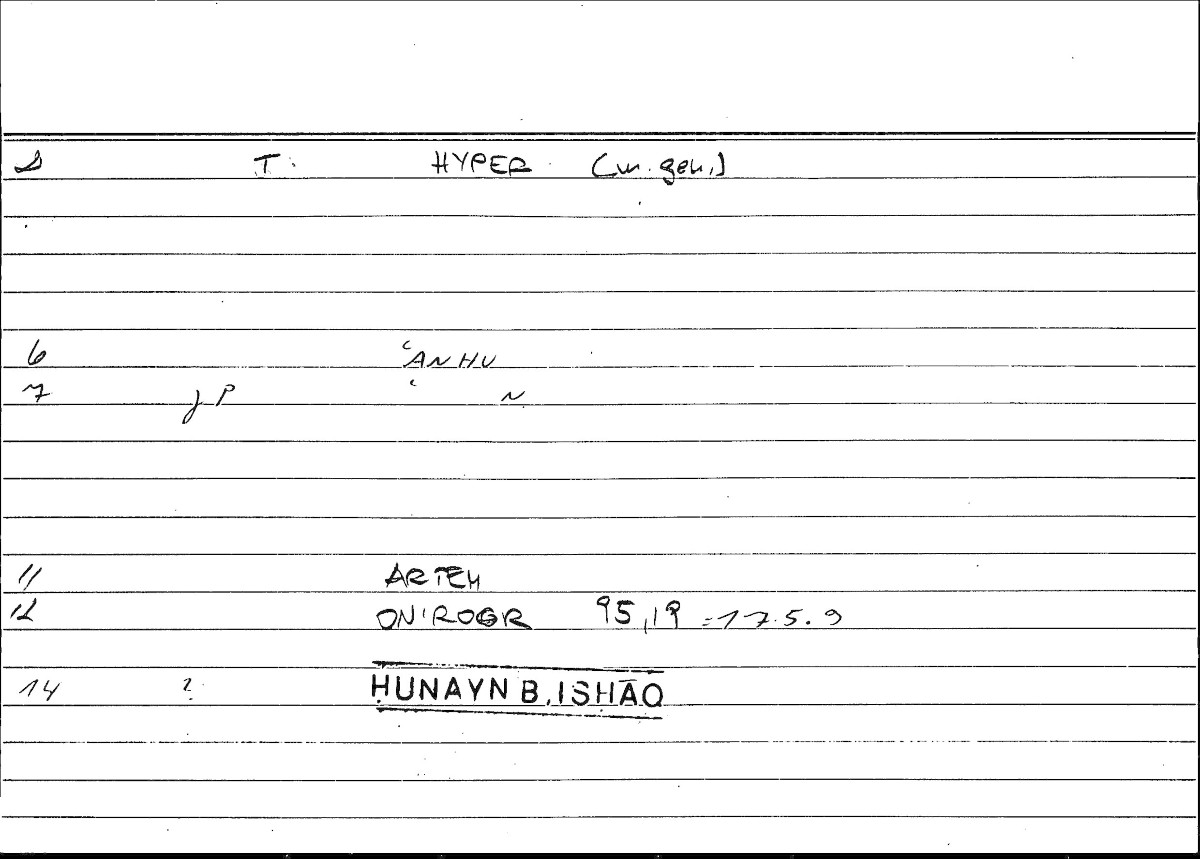 T. HYPER (m. gen.)
6 ʿANHU
7 P ʿ N
11 ARTEM
12 ONIROGR 95,19 = 17.5.9
14 ? ḤUNAYN B. ISḤĀQ